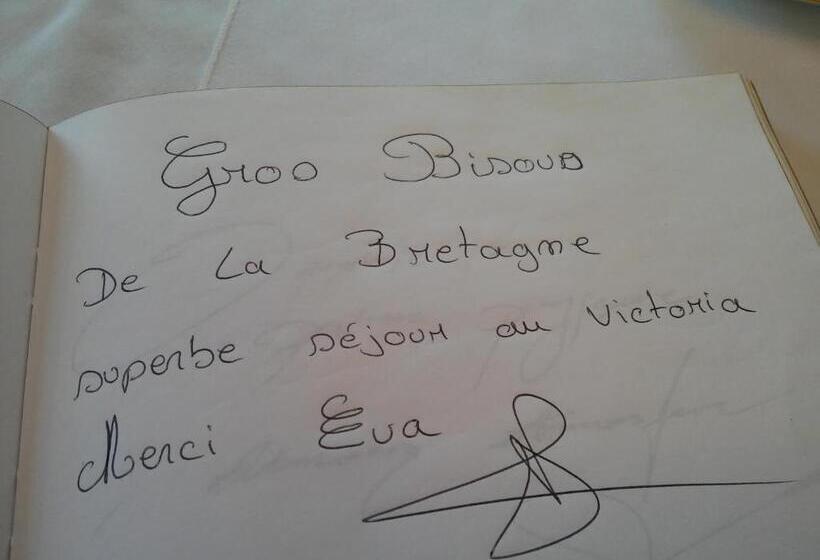 Gros Bisous
De La Bretagne
superbe séjour au Victoria
Merci Eva